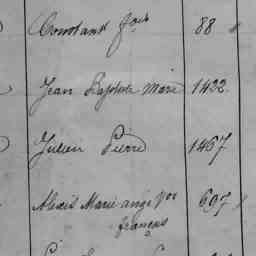 Constant fois 88 "
Jean Baptiste Marie 1422.
Julien Pierre 1467
Alexis Marie ange 697 "
françois